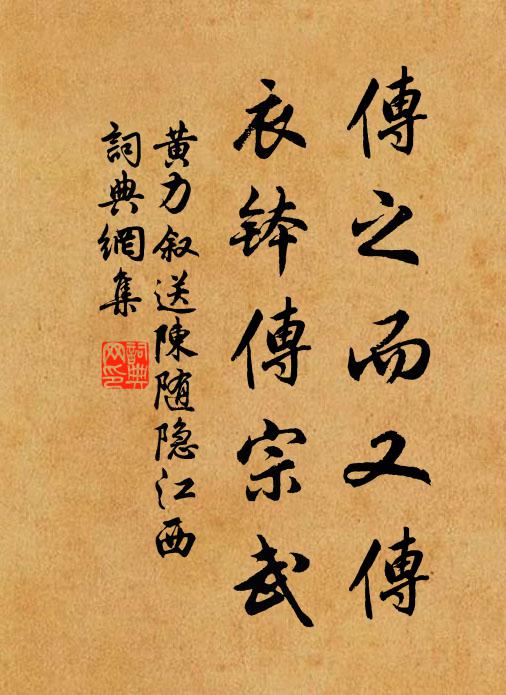 傳之而又傳
衣鉢傳宗武
黄力叙送陳随隐江西
詞典網集
詞典網印